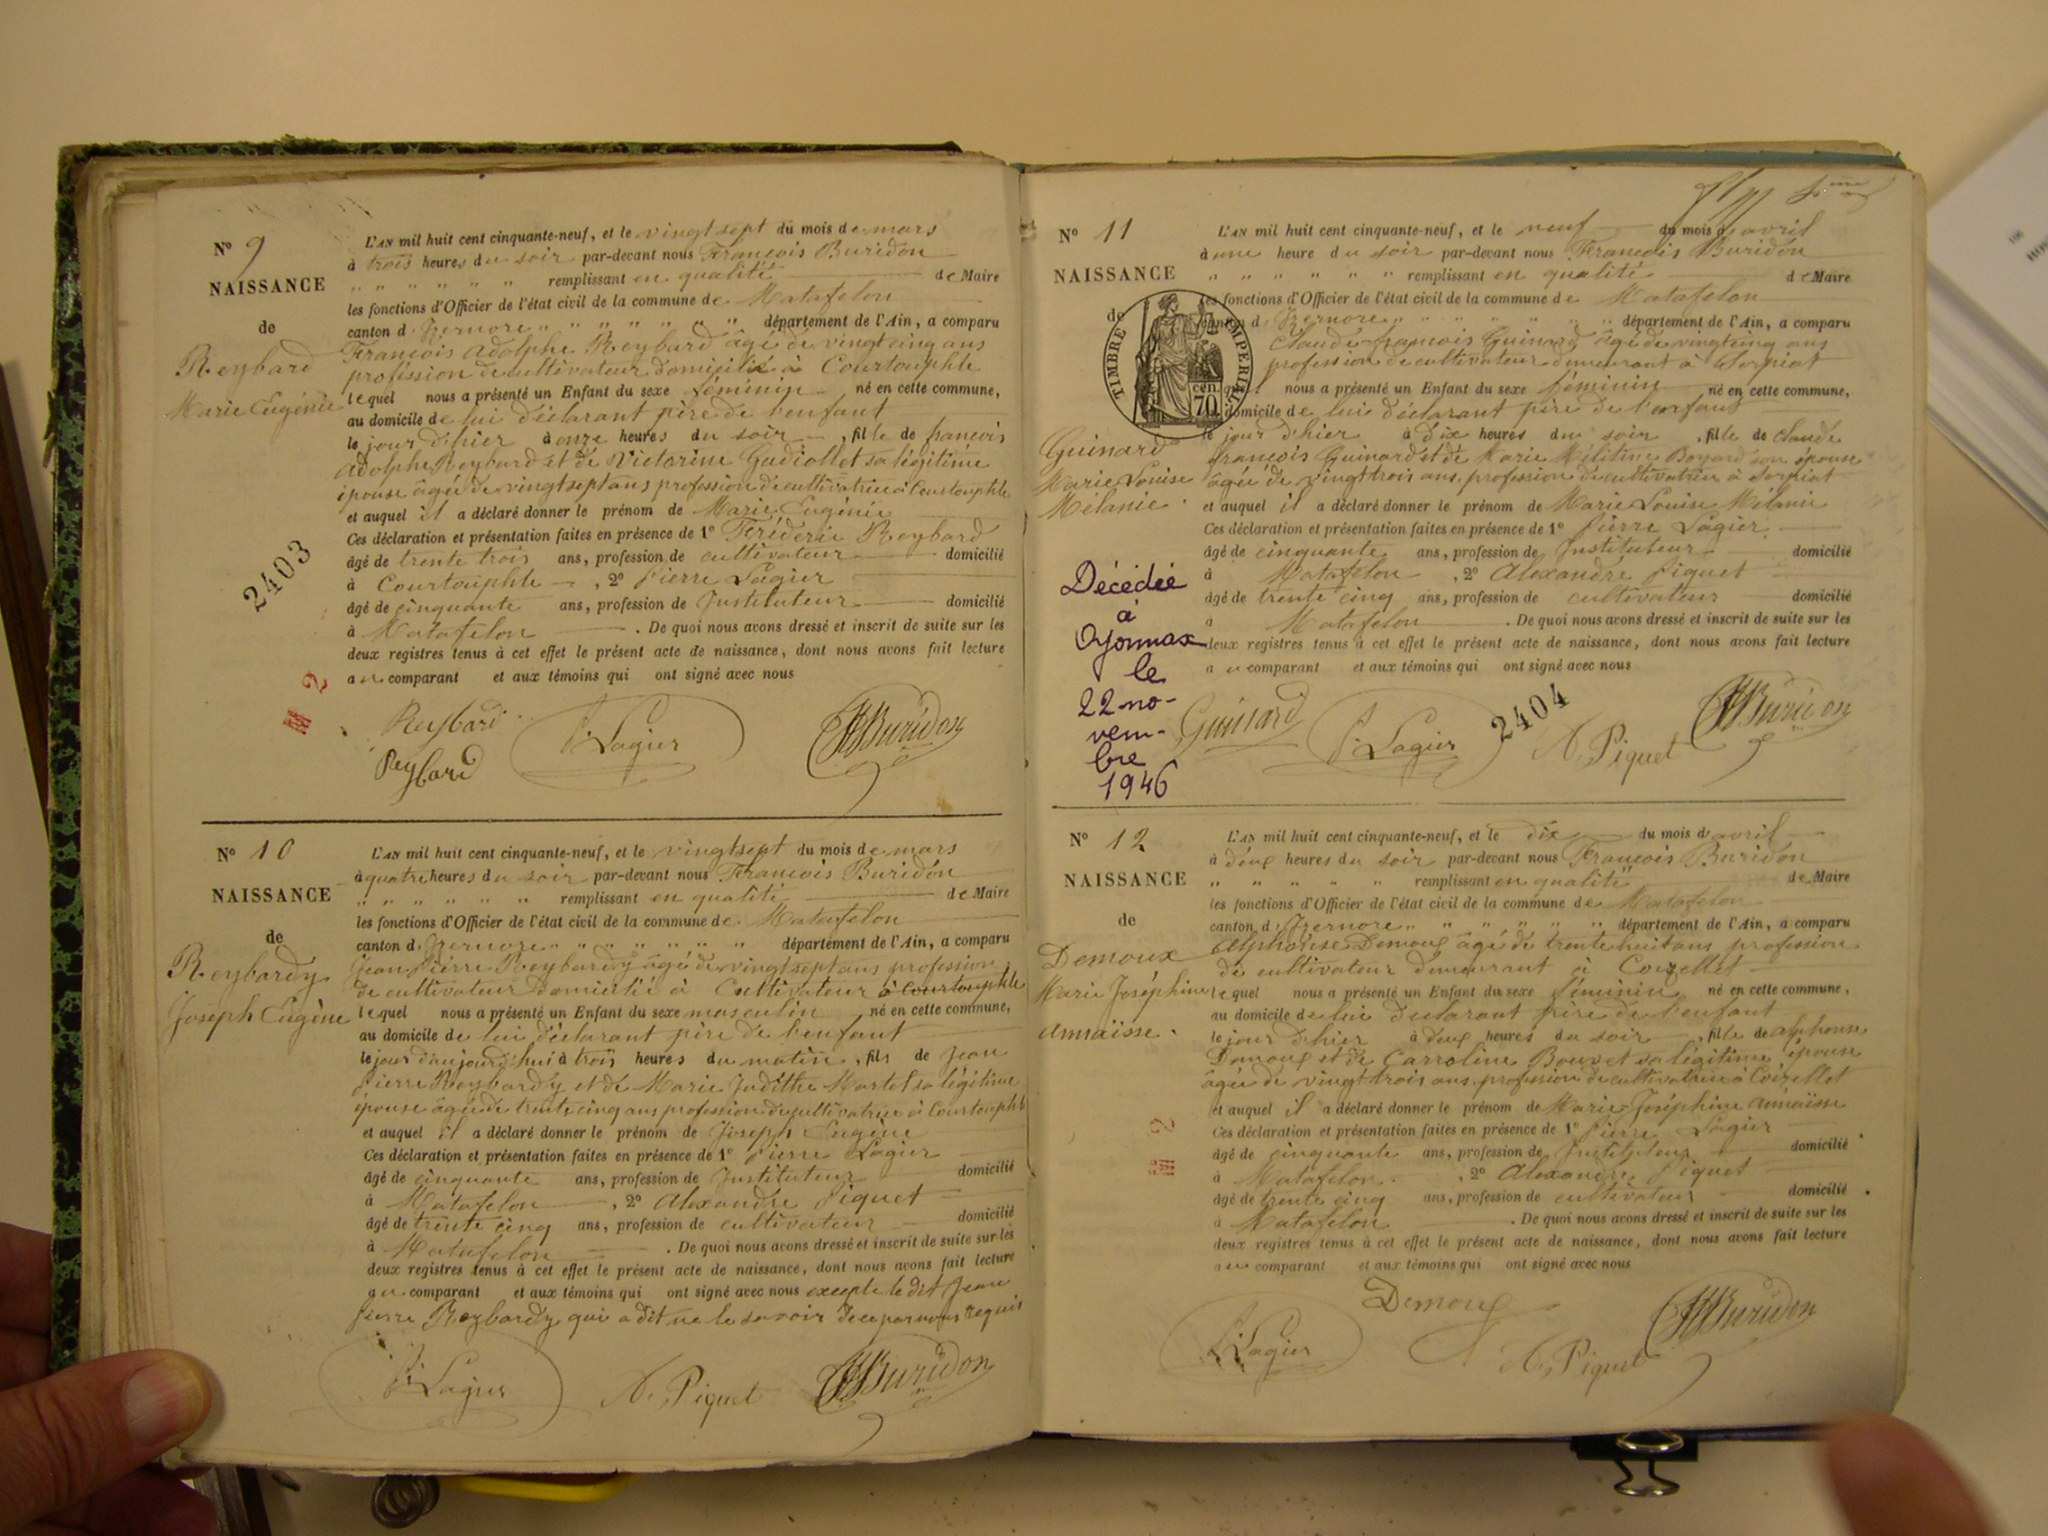 N° 9
NAISSANCE
de
Reybard
Marie Eugénie
2403
L'AN mil huit cent cinquante-neuf, et le vingt sept du mois de mars
à trois heures du soir par-devant nous François Buridon
" " " " " " remplissant en qualité de Maire
les fonctions d'Officier de l'état civil de la commune de Matafelon
canton d'Izernore " " " " " " " département de l'Ain, a comparu
François Adolphe Reybard âgé de vingt cinq ans
profession de cultivateur domicilié à Courtouphle
lequel nous a présenté un Enfant du sexe féminin né en cette commune,
au domicile de lui déclarant père de l'enfant
le jour d'hier à onze heures du soir , fille de françois
Adolphe Reybard et de Victorine Gadiollet sa légitime
épouse âgée de vingt sept ans profession de cultivatrice à Courtouphle
et auquel il a déclaré donner le prénom de Marie Eugénie
Ces déclaration et présentation faites en présence de 1° Fréderic Reybard
âgé de trente trois ans, profession de cultivateur domicilié
à Courtouphle , 2° Pierre Lagier
âgé de cinquante ans, profession de Instituteur domicilié
à Matafelon . De quoi nous avons dressé et inscrit de suite sur les
deux registres tenus à cet effet le présent acte de naissance, dont nous avons fait lecture
au comparant et aux témoins qui ont signé avec nous
Reybard
Reybard
P. Lagier
Buridon
N° 10
NAISSANCE
de
Reybardy
Joseph Eugène
L'AN mil huit cent cinquante-neuf, et le vingt sept du mois de mars
à quatre heures du soir par-devant nous François Buridon
" " " " " " remplissant en qualité de Maire
les fonctions d'Officier de l'état civil de la commune de Matafelon
canton d'Izernore " " " " " " " département de l'Ain, a comparu
Jean Pierre Reybardy âgé de vingt sept ans profession
de cultivateur domicilié à Cultivateur à Courtouphle
lequel nous a présenté un Enfant du sexe masculin né en cette commune,
au domicile de lui déclarant père de l'enfant
le jour d'aujourd'hui à trois heures du matin , fils de Jean
Pierre Reybardy et de Marie Judithe Martel sa légitime
épouse âgée de trente cinq ans profession de cultivatrice à Courtouphle
et auquel il a déclaré donner le prénom de Joseph Eugène
Ces déclaration et présentation faites en présence de 1° Pierre Lagier
âgé de cinquante ans, profession de Instituteur domicilié
à Matafelon , 2° Alexandre Piquet
âgé de trente cinq ans, profession de cultivateur domicilié
à Matafelon . De quoi nous avons dressé et inscrit de suite sur les
deux registres tenus à cet effet le présent acte de naissance, dont nous avons fait lecture
au comparant et aux témoins qui ont signé avec nous excepté le dit Jean
Pierre Reybardy qui a dit ne le savoir de ce par nous requis
P. Lagier
A. Piquet
Buridon
N° 11
NAISSANCE
de
TIMBRE IMPERIAL
70 cen
Guinard
Marie Louise
Mélanie.
Décédée
à
Oyonnax
le
22 no-
vem-
bre
1946
L'AN mil huit cent cinquante-neuf, et le neuf du mois d'avril
à une heure du soir par-devant nous François Buridon
" " " " " " remplissant en qualité de Maire
les fonctions d'Officier de l'état civil de la commune de Matafelon
canton d'Izernore " " " " " " " département de l'Ain, a comparu
Claude françois Guinard âgé de vingt cinq ans
profession de cultivateur demeurant à Sorpiat
quel nous a présenté un Enfant du sexe féminin né en cette commune,
domicile de lui déclarant père de l'enfant
le jour d'hier à dix heures du soir , fille de claude
françois Guinard et de Marie Mélitine Boyard son épouse
âgée de vingt trois ans, profession de cultivatrice à Sorpiat
et auquel il a déclaré donner le prénom de Marie Louise Mélanie
Ces déclaration et présentation faites en présence de 1° Pierre Lagier
âgé de cinquante ans, profession de Instituteur domicilié
à Matafelon , 2° Alexandre Piquet
âgé de trente cinq ans, profession de cultivateur domicilié
à Matafelon . De quoi nous avons dressé et inscrit de suite sur les
deux registres tenus à cet effet le présent acte de naissance, dont nous avons fait lecture
au comparant et aux témoins qui ont signé avec nous
Guinard
P. Lagier
2404
A. Piquet
Buridon
N° 12
NAISSANCE
de
Demoux
Marie Joséphine
Annaïsse.
L'AN mil huit cent cinquante-neuf, et le dix du mois d'avril
à deux heures du soir par-devant nous François Buridon
" " " " " remplissant en qualité de Maire
les fonctions d'Officier de l'état civil de la commune de Matafelon
canton d'Izernore " " " " " " " département de l'Ain, a comparu
Alphonse Demoux âgé de trente huit ans profession
de cultivateur demeurant à Coizellet
lequel nous a présenté un Enfant du sexe féminin né en cette commune,
au domicile de lui déclarant père de l'enfant
le jour d'hier à deux heures du soir , fille de alphonse
Demoux et de Carroline Bouvet sa légitime épouse
âgée de vingt trois ans, profession de cultivatrice à Coizellet
et auquel il a déclaré donner le prénom de Marie Joséphine Annaïsse
Ces déclaration et présentation faites en présence de 1° Pierre Lagier
âgé de cinquante ans, profession de Instituteur domicilié
à Matafelon , 2° Alexandre Piquet
âgé de trente cinq ans, profession de cultivateur domicilié
à Matafelon . De quoi nous avons dressé et inscrit de suite sur les
deux registres tenus à cet effet le présent acte de naissance, dont nous avons fait lecture
au comparant et aux témoins qui ont signé avec nous
Demoux
P. Lagier
A. Piquet
Buridon